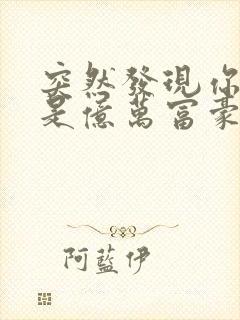 突然發現你
是億萬富豪
阿藍伊